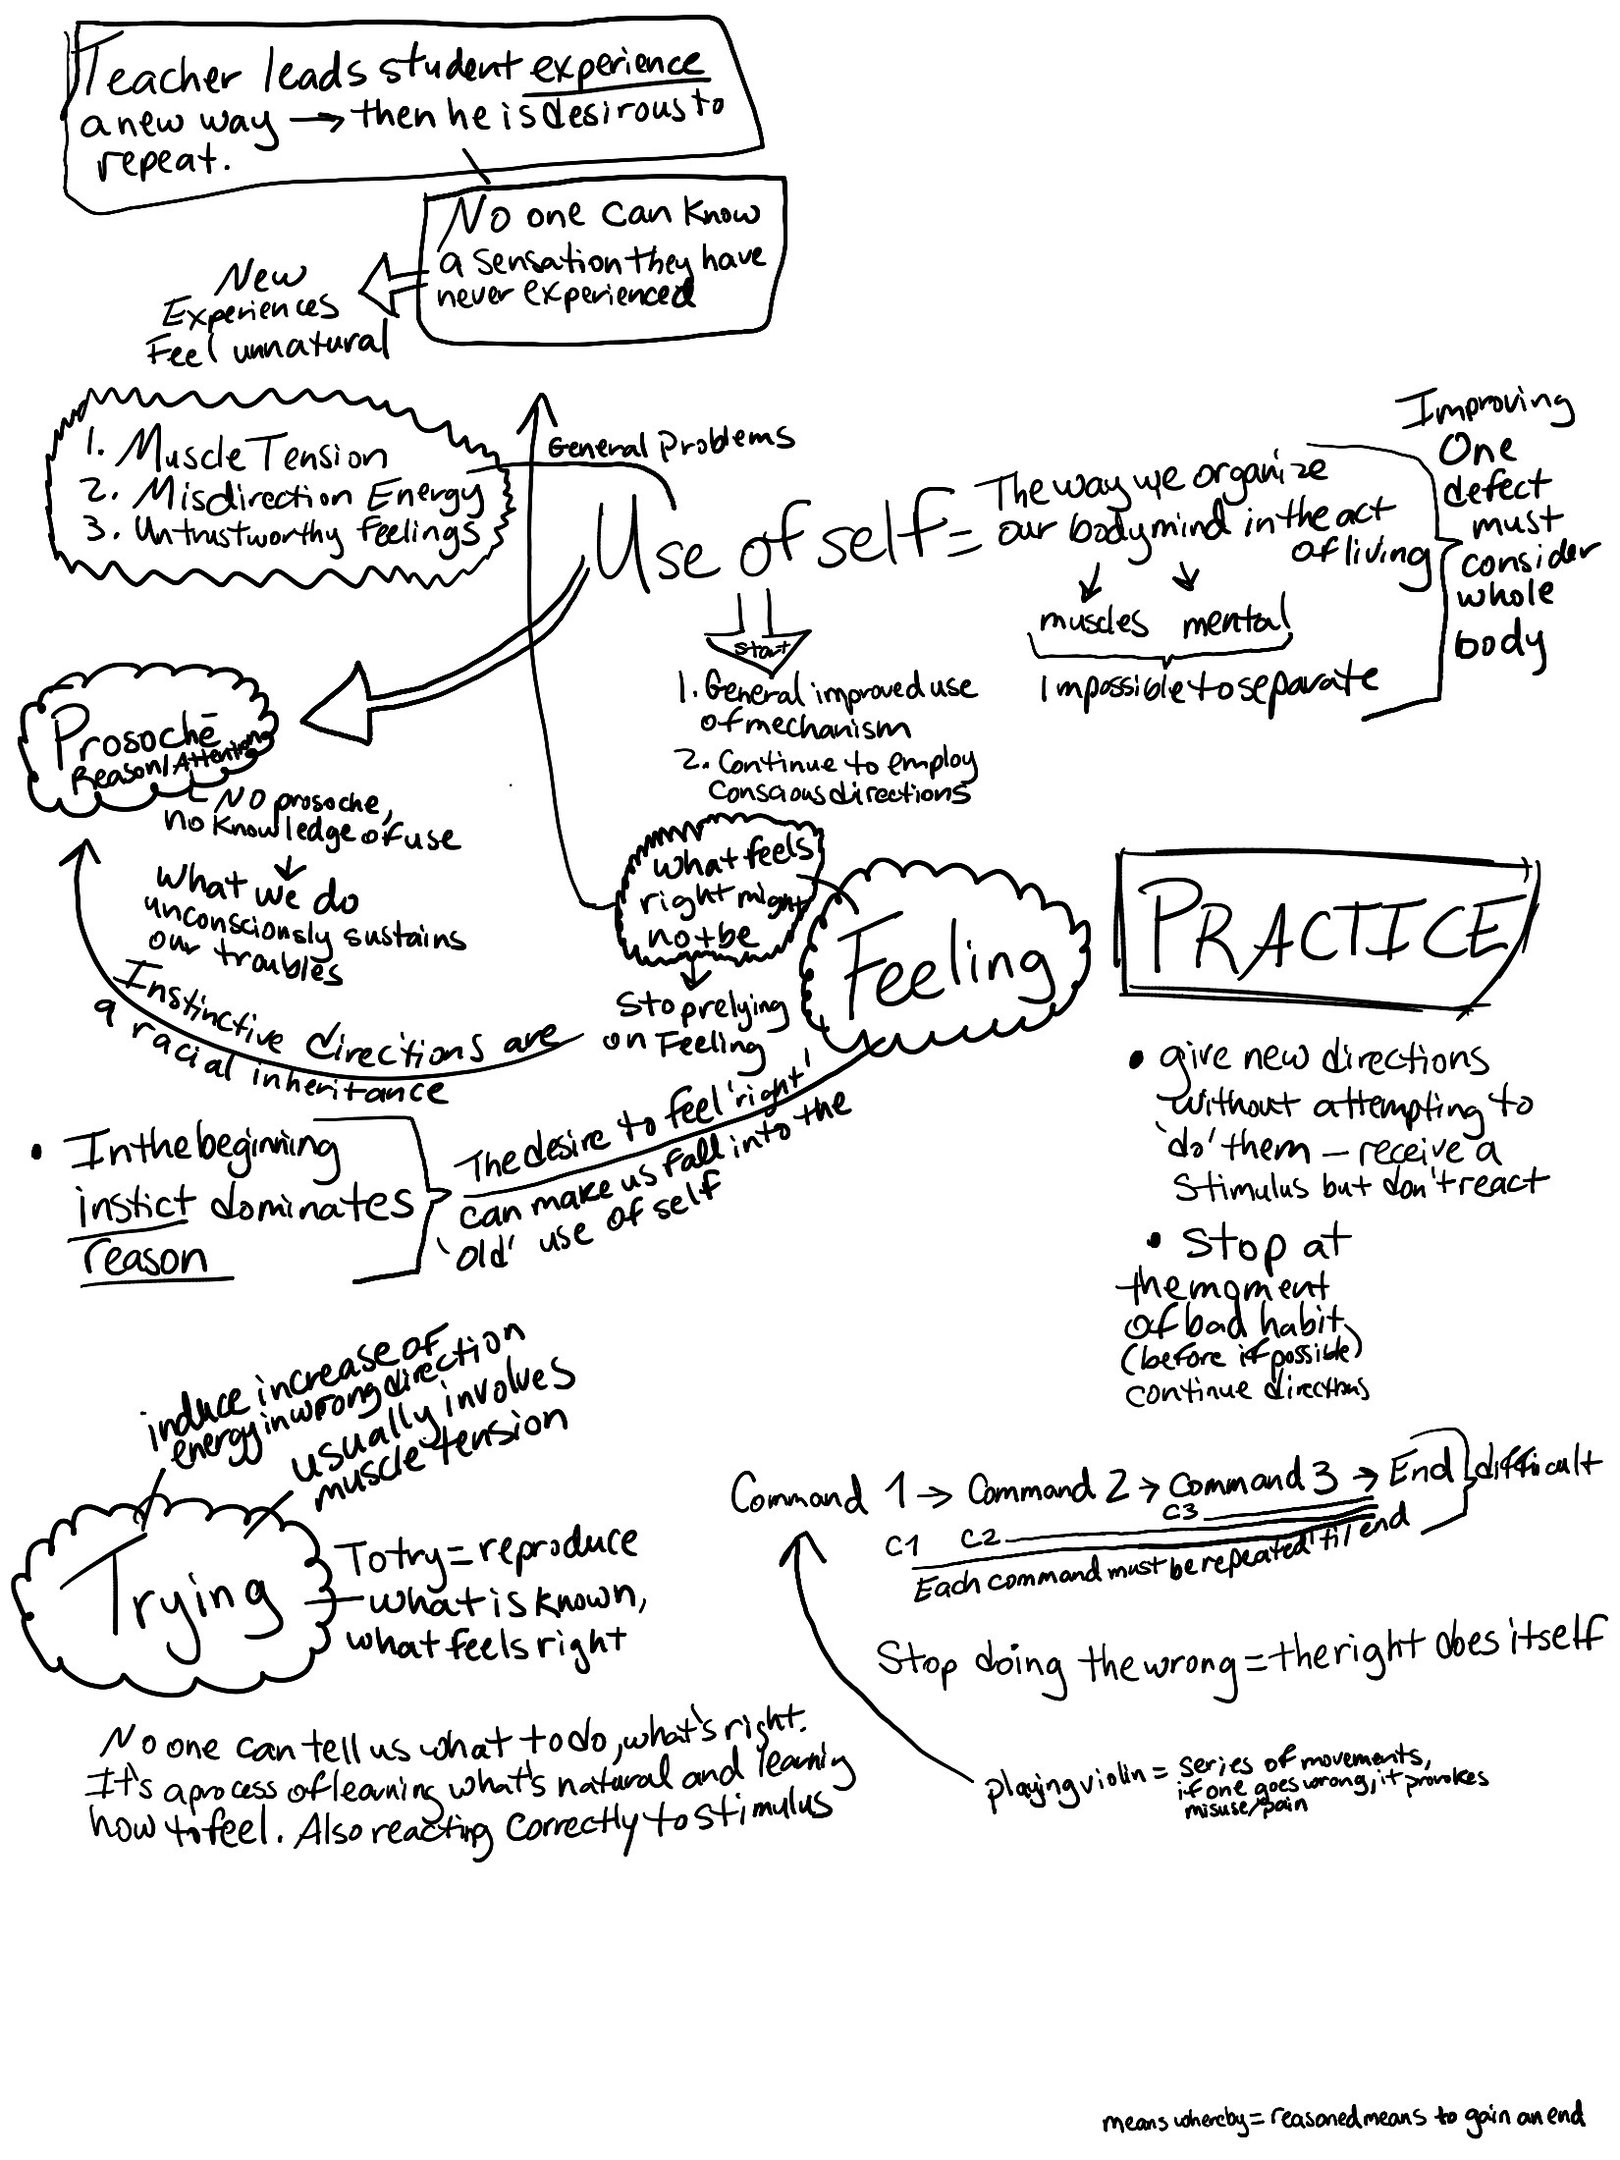 Teacher leads student experience
a new way → then he is desirous to
repeat.
No one can know
a sensation they have
never experienced
New
Experiences
Feel unnatural
1. Muscle Tension
2. Misdirection Energy
3. Untrustworthy feelings
General Problems
Use of self =
The way we organize
our bodymind in the act
of living
muscles mental
Impossible to separate
Improving
One
defect
must
consider
whole
body
Start
1. General improved use
of mechanism
2. Continue to employ
conscious directions
Prosochē
Reason/Attention
- No prosoche,
no knowledge of use
What we do
unconsciously sustains
our troubles
Instinctive directions are
a racial inheritance
what feels
right might
not be
Stop relying
on Feeling
Feeling
The desire to feel 'right'
can make us fall into the
'old' use of self
• In the beginning
instict dominates
reason
PRACTICE
• give new directions
without attempting to
'do' them – receive a
stimulus but don't react
• Stop at
the moment
of bad habit
(before if possible)
continue directions
induce increase of
energy in wrong direction
usually involves
muscle tension
Trying
To try = reproduce
what is known,
what feels right
Command 1 → Command 2 → Command 3 → End
difficult
C1 C2 C3
Each command must be repeated 'til end
Stop doing the wrong = the right does itself
playing violin = series of movements,
if one goes wrong, it provokes
misuse/pain
No one can tell us what to do, what's right.
It's a process of learning what's natural and learnig
how to feel. Also reacting correctly to stimulus
means whereby = reasoned means to gain an end